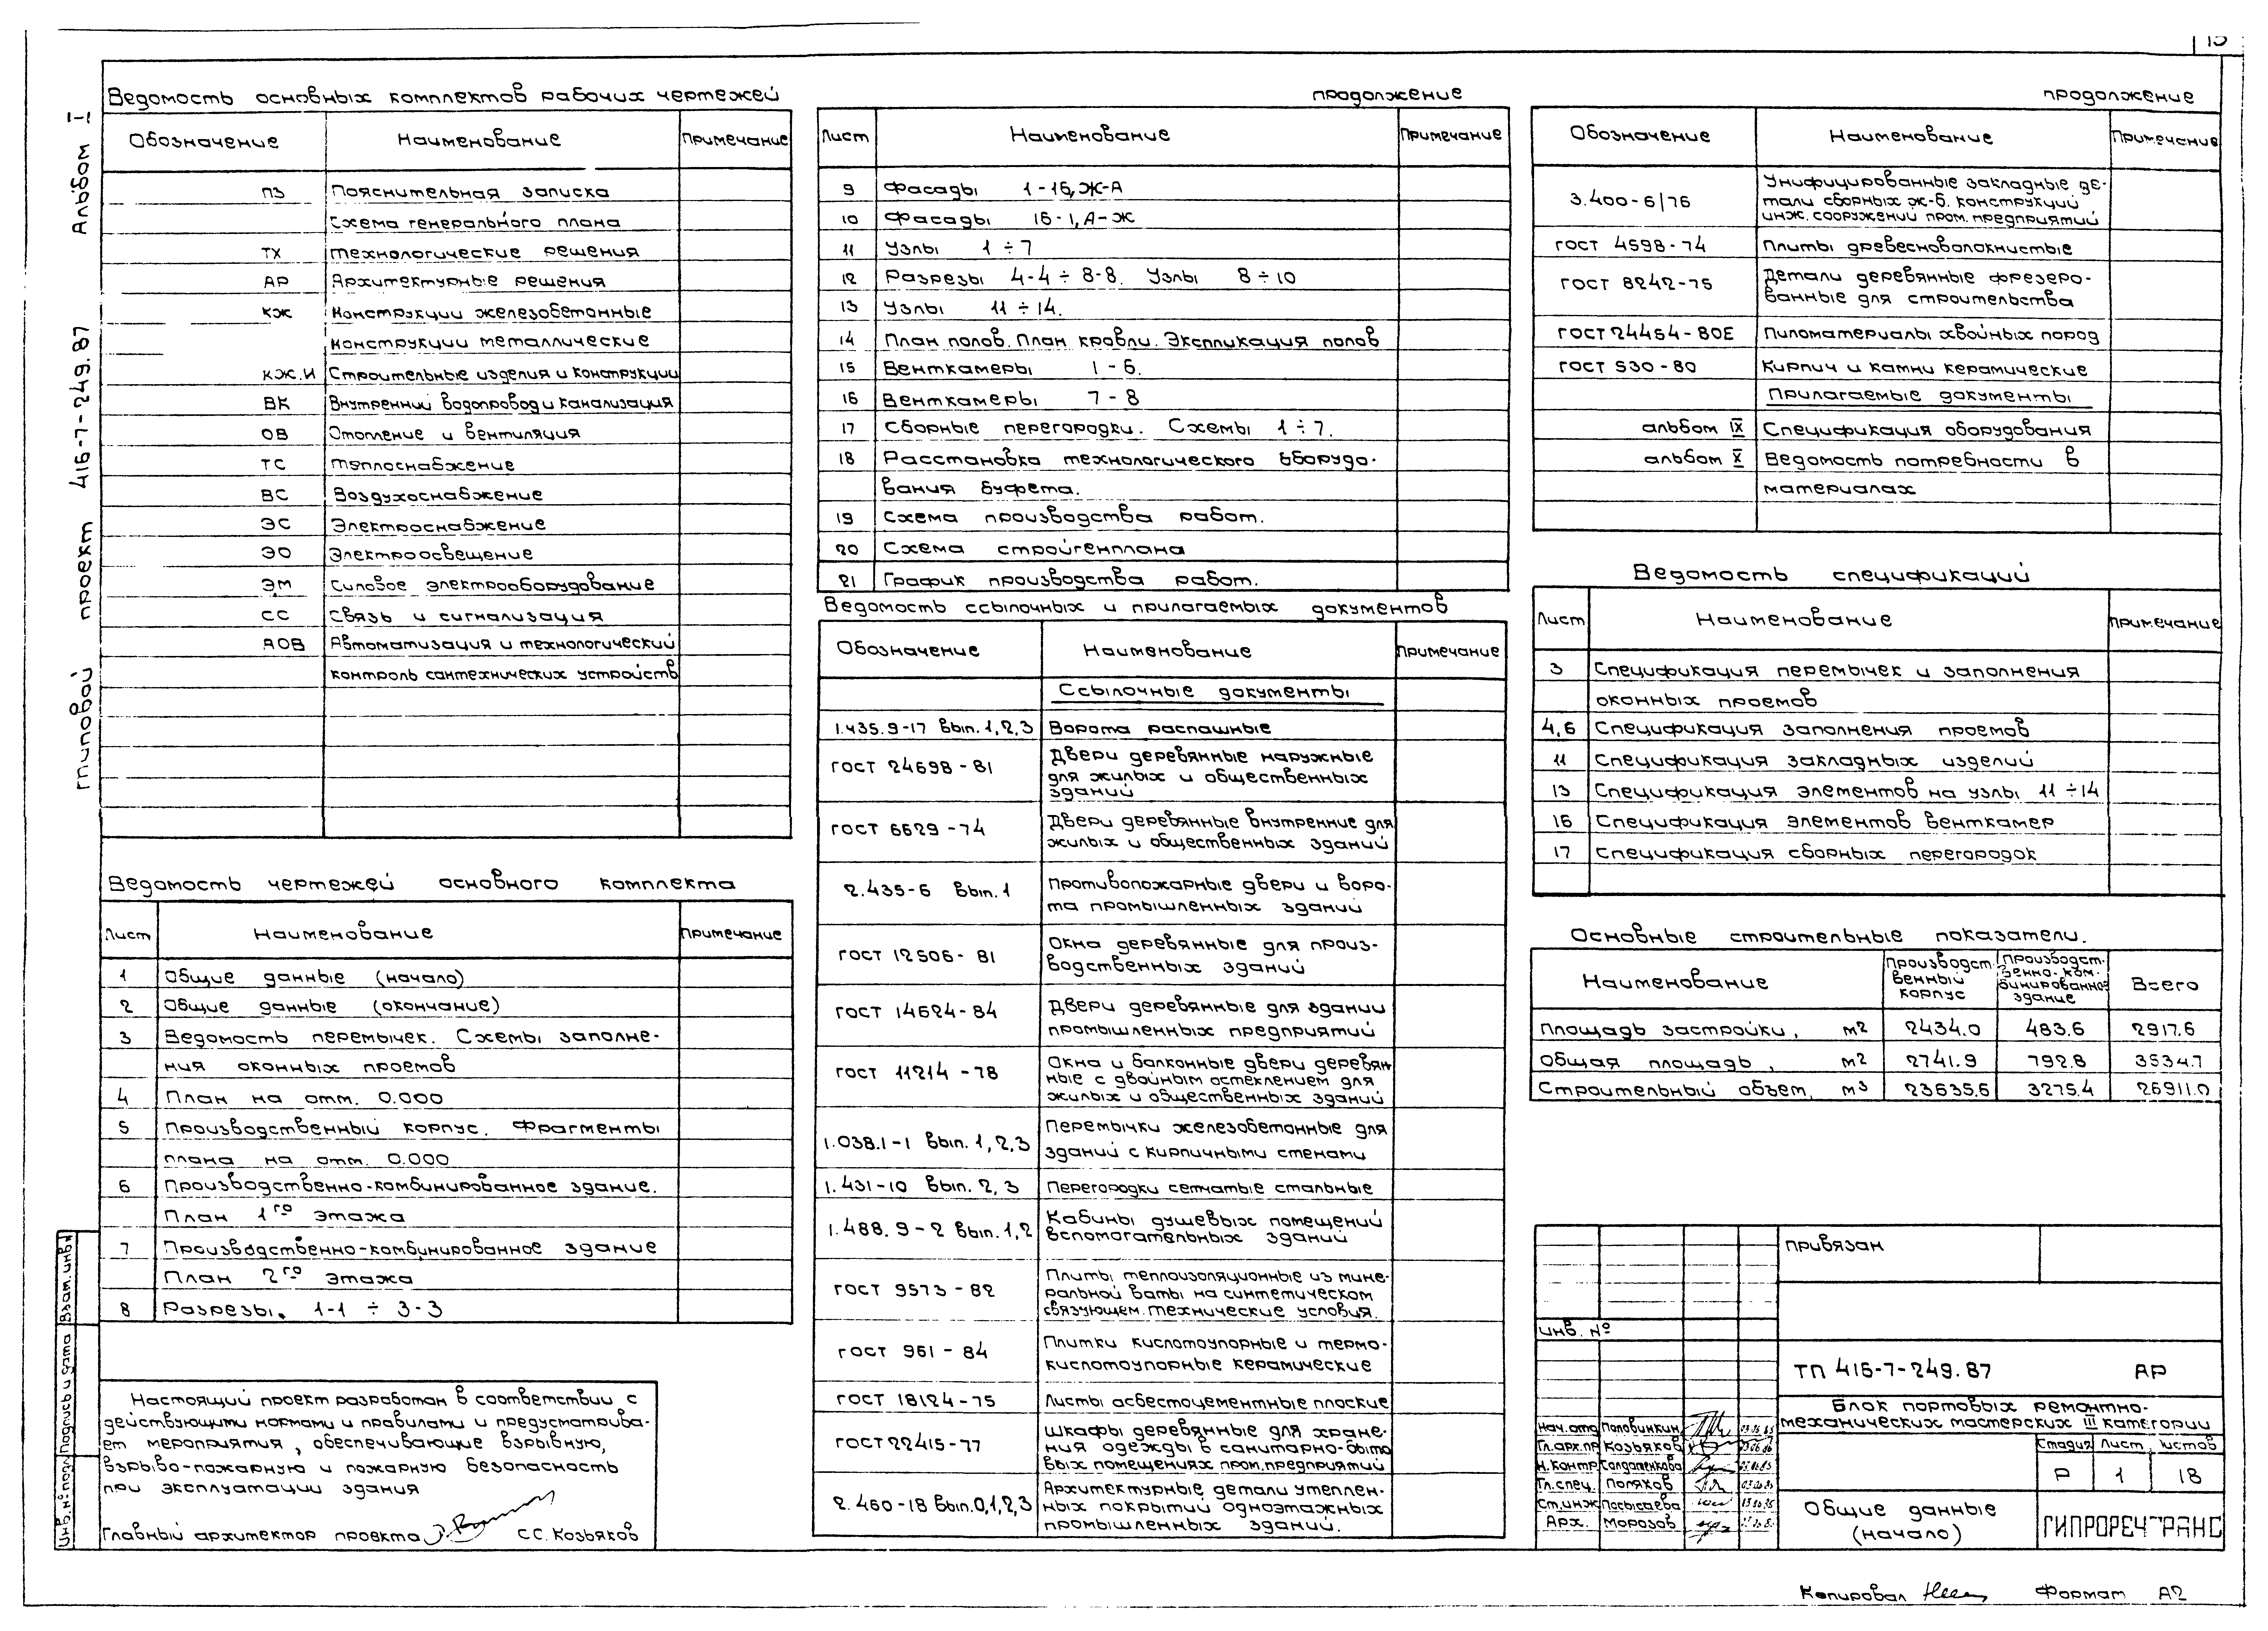 15
Альбом I
типовой проект 416-7-249.87
Ведомость основных комплектов рабочих чертежей
Обозначение Наименование Примечание
ПЗ Пояснительная записка
Схема генерального плана
ТХ Технологические решения
АР Архитектурные решения
КЖ Конструкции железобетонные
Конструкции металлические
КЖ.И Строительные изделия и конструкции
ВК Внутренний водопровод и канализация
ОВ Отопление и вентиляция
ТС Теплоснабжение
ВС Воздухоснабжение
ЭС Электроснабжение
ЭО Электроосвещение
ЭМ Силовое электрооборудование
СС Связь и сигнализация
АОВ Автоматизация и технологический
контроль сантехнических устройств
Ведомость чертежей основного комплекта
Лист Наименование Примечание
1 Общие данные (начало)
2 Общие данные (окончание)
3 Ведомость перемычек. Схемы заполне-
ния оконных проемов
4 План на отм. 0.000
5 Производственный корпус. Фрагменты
плана на отм. 0.000
6 Производственно-комбинированное здание.
План 1го этажа
7 Производственно-комбинированное здание
План 2го этажа
8 Разрезы. 1-1 ÷ 3-3
Настоящий проект разработан в соответствии с
действующими нормами и правилами и предусматрива-
ет мероприятия, обеспечивающие взрывную,
взрыво-пожарную и пожарную безопасность
при эксплуатации здания
Главный архитектор проекта С.С. Козьяков
Взам. инв.№
Подпись и дата
Инв.№ подл
продолжение
Лист Наименование Примечание
9 Фасады 1-16, Ж-А
10 Фасады 16-1, А-Ж
11 Узлы 1 ÷ 7
12 Разрезы 4-4 ÷ 8-8. Узлы 8 ÷ 10
13 Узлы 11 ÷ 14.
14 План полов. План кровли. Экспликация полов
15 Венткамеры 1 - 6.
16 Венткамеры 7 - 8
17 Сборные перегородки. Схемы 1 ÷ 7.
18 Расстановка технологического оборудо-
вания буфета.
19 Схема производства работ.
20 Схема стройгенплана
21 График производства работ.
Ведомость ссылочных и прилагаемых документов
Обозначение Наименование Примечание
Ссылочные документы
1.435.9-17 Вып. 1,2,3 Ворота распашные
ГОСТ 24698-81 Двери деревянные наружные
для жилых и общественных
зданий
ГОСТ 6629-74 Двери деревянные внутренние для
жилых и общественных зданий
2.435-6 Вып. 1 Противопожарные двери и воро-
та промышленных зданий
ГОСТ 12506-81 Окна деревянные для произ-
водственных зданий
ГОСТ 14624-84 Двери деревянные для здании
промышленных предприятий
ГОСТ 11214-78 Окна и балконные двери деревян
ные с двойным остеклением для
жилых и общественных зданий
1.038.1-1 Вып. 1,2,3 Перемычки железобетонные для
зданий с кирпичными стенами
1.431-10 Вып. 2,3 Перегородки сетчатые стальные
1.488.9-2 Вып. 1,2 Кабины душевых помещений
вспомогательных зданий
ГОСТ 9573-82 Плиты теплоизоляционные из мине-
ральной ваты на синтетическом
связующем. Технические условия.
ГОСТ 961-84 Плитки кислотоупорные и термо-
кислотоупорные керамические
ГОСТ 18124-75 Листы асбестоцементные плоские
ГОСТ 22415-77 Шкафы деревянные для хране-
ния одежды в санитарно-быто
вых помещениях пром. предприятий
2.460-18 Вып.0,1,2,3 Архитектурные детали утеплен-
ных покрытий одноэтажных
промышленных зданий.
продолжение
Обозначение Наименование Примечание
3.400-6/76 Унифицированные закладные де-
тали сборных ж-б. конструкций
инж. сооружений пром. предприятий
ГОСТ 4598-74 Плиты древесноволокнистые
ГОСТ 8242-75 Детали деревянные фрезеро-
ванные для строительства
ГОСТ 24454-80Е Пиломатериалы хвойных пород
ГОСТ 530-80 Кирпич и камни керамические
Прилагаемые документы
альбом IX Спецификация оборудования
альбом X Ведомость потребности в
материалах
Ведомость спецификаций
Лист Наименование Примечание
3 Спецификация перемычек и заполнения
оконных проемов
4,6 Спецификация заполнения проемов
11 Спецификация закладных изделий
13 Спецификация элементов на узлы 11 ÷ 14
16 Спецификация элементов венткамер
17 Спецификация сборных перегородок
Основные строительные показатели.
Наименование Производст венный корпус Производст. венно-ком-бинированное здание Всего
Площадь застройки, м2 2434.0 483.6 2917.6
Общая площадь, м2 2741.9 792.8 3534.7
Строительный объем, м3 23635.6 3275.4 26911.0
привязан
инв. №
ТП 416-7-249.87 АР
Блок портовых ремонтно-
механических мастерских III категории
Нач. отд Половинкин
Гл.арх.пр Козьяков
Н.контр Солдатенкова
Гл.спец. Поляков
Ст.инж
Арх. Морозов
Стадия Лист Листов
Р 1 18
Общие данные
(начало)
ГИПРОРЕЧТРАНС
Копировал Формат А2